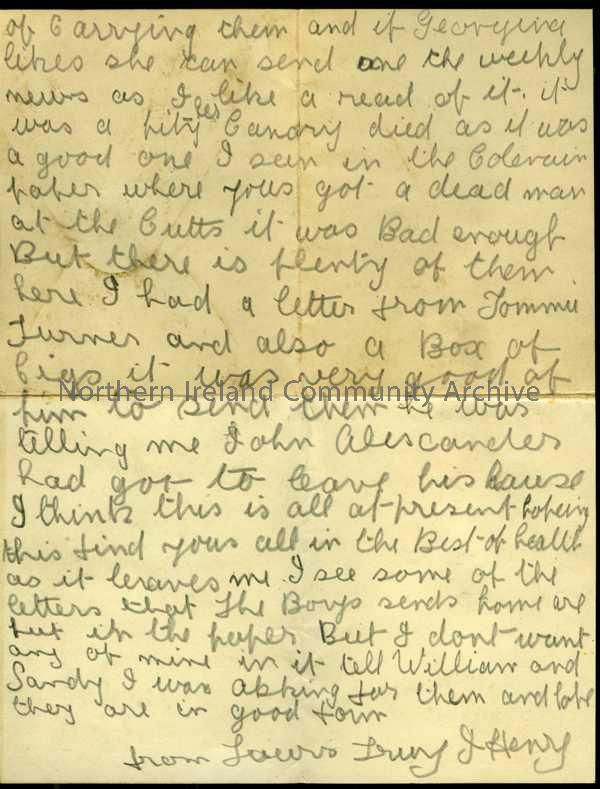 of Carrying them and if Georgina
likes she can send me the weekly
news as I like a read of it. it
was a pity her Canary died as it was
a good one I seen in the Colerain
paper where yous got a dead man
at the Cutts it was Bad enough
But there is plenty of them
here I had a letter from Tommie
Turner and also a Box of
Cigs it was very good of
Northern Ireland Community Archive
him to send them he was
telling me John Alescander
had got to leave his hause
I think this is all at present hopeing
this find yous all in the Best of health
as it leaves me I see some of the
letters that the Boys sends home are
put in the paper But I dont want
any of mine in it tell William and
Sandy I was asking for them and hope
they are in good form
from Yours Truly J Henry